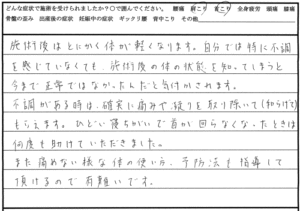 どんな症状で施術を受けられましたか？○で囲んでください。 腰痛 肩こり 首こり 全身疲労 頭痛 膝痛
骨盤の歪み 出産後の症状 妊娠中の症状 ギックリ腰 背中こり その他
施術後はとにかく体が軽くなります。自分では特に不調
を感じていなくても、施術後の体の状態を知ってしまうと
今まで正常ではなかったんだと気付かされます。
不調がある時は、確実に痛みや凝りを取り除いて(和らげて)
もらえます。ひどい寝ちがいで首が回らなくなったときは
何度も助けていただきました。
また痛めない様な体の使い方、予防法も指導して
頂けるので有難いです。